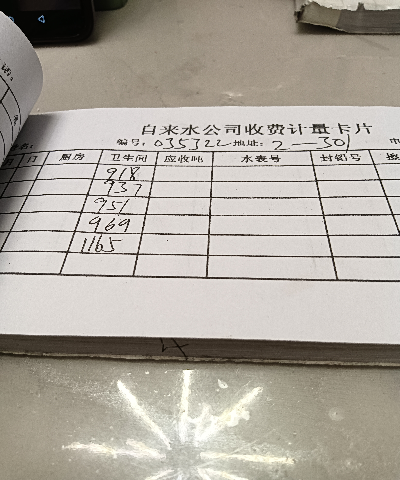 自来水公司收费计量卡片
编号：035322 地址：2—301
厨房 卫生间 应收吨 水表号 封铅号
918
937
951
969
1165